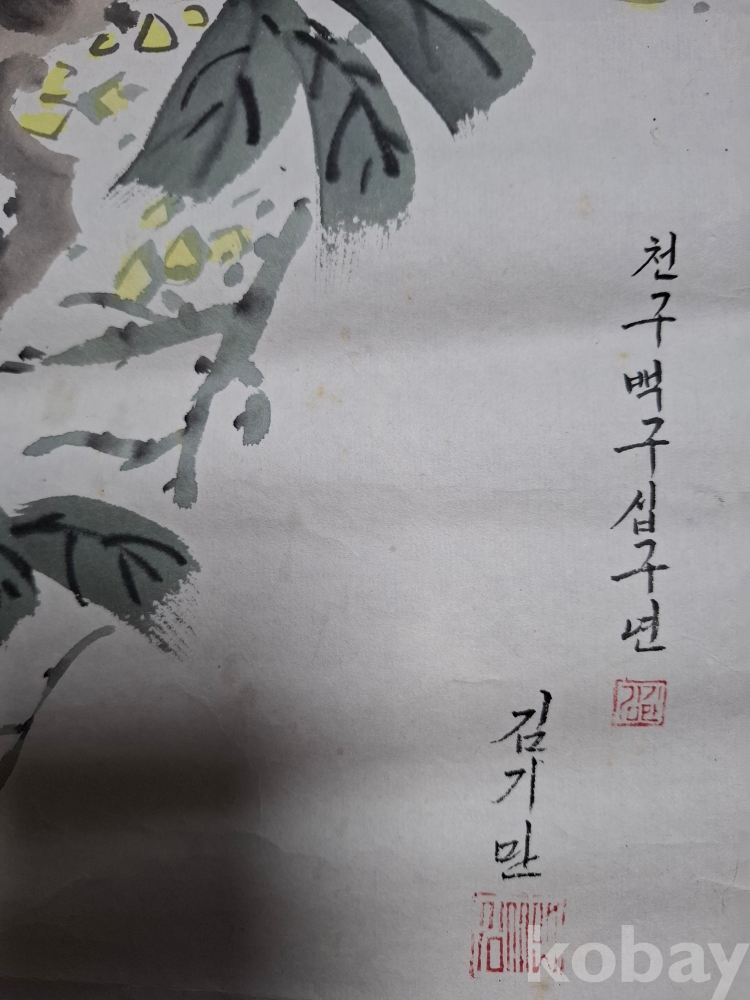 천구백구십구년
김기만
김기만
kobay